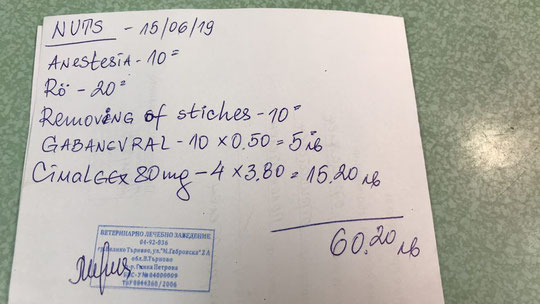 NUTS - 15/06/19
ANestesiA - 10=
Rö - 20=
Removing of stiches - 10=
GABANEVRAL - 10 x 0.50 = 5 лв
CimalGex 80mg - 4 x 3,80 = 15,20 лв
60.20 лв
ВЕТЕРИНАРНО ЛЕЧЕБНО ЗАВЕДЕНИЕ
04-92-036
Търново, ул."М.Габровски"
обл.В.Търново
Петрова